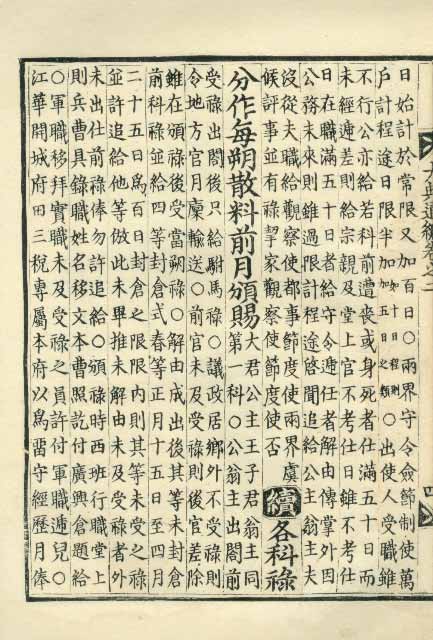 大典通編卷之二
四
日始計於常限又加百日○兩界守令僉節制使萬
戶計程途日限半加如十日程則加五日之類○出使人受職雖
不行公亦給若科前遭喪或身死者仕滿五十日而
未經遞差則給宗親及堂上官不考仕日雖不考仕
日在職滿五十日者給守令遞任者解由傳掌外因
公務未來則雖過限計程途啓聞追給公主翁主夫
沒從夫職給觀察使都事節度使兩界虞
候評事並有祿挈家觀察使節度使否
續各科祿
分作每朔散料前月頒賜大君公主王子君翁主同
第一科○公翁主出閤前
受祿出閤後只給駙馬祿○議政居鄉外不受祿則
令地方官月廩輸送○前官未及受祿則後官差除
雖在頒祿後受當朔祿○解由成出後其等未封倉
前科祿並給四等封倉式春等正月十五日至四月
二十五日爲百日封倉之限限內則其等未受之祿
並許追給他等倣此未畢推未解由未及受祿者外
未出仕前祿俸勿許追給○頒祿時西班行職堂上
則兵曹具錄職姓名移文本曹照訖付廣興倉題給
○軍職移拜實職未及受祿之員許付軍職遞兒○
江華開城府田三稅專屬本府以爲留守經歷月俸